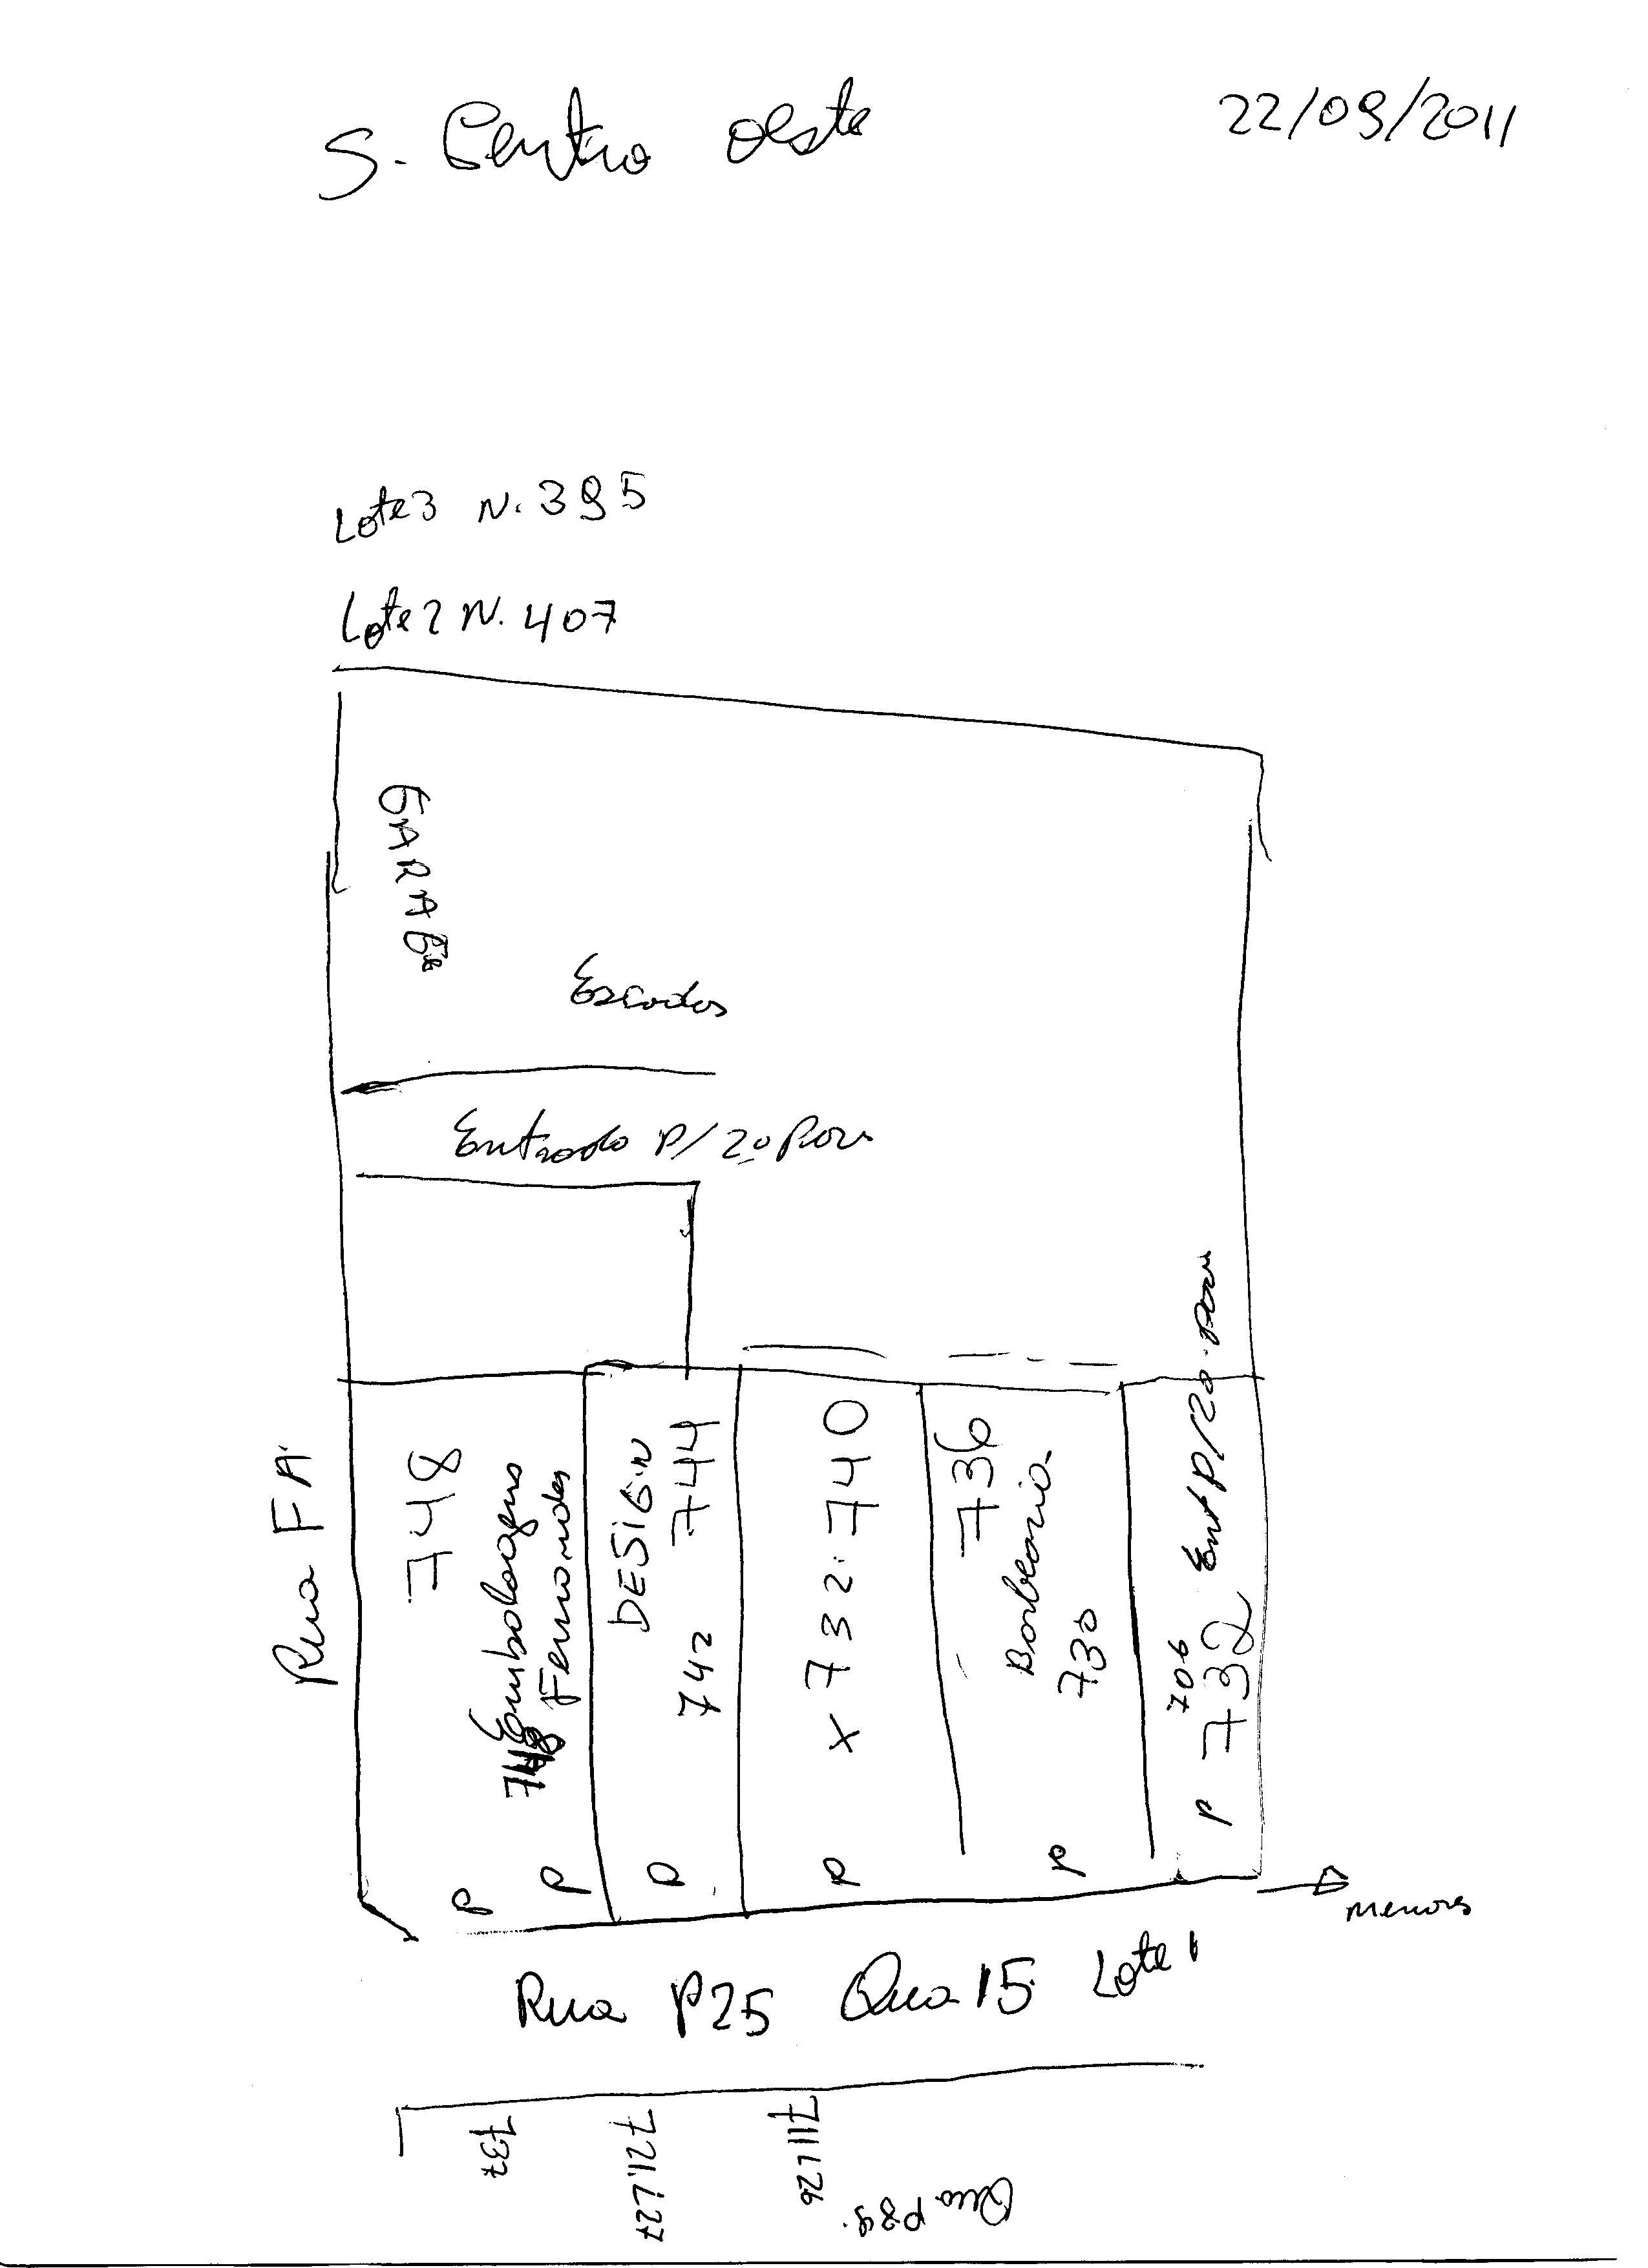 S. Centro oeste
22/09/2011
Lote 3 N. 395
Lote 2 N. 407
GARAGe
Escadas
Entrada P/ 2o Pav
Rua FA
748
Embalagens
Fernandes
748
DESIGN
742 744
X 732. 740
736
Barbearia
730
Ent P/ 2o. Pav
706
P 732
P
P
P
P
P
menores
Rua P25 Qua 15 Lote 1
737
721. L27
711 L26